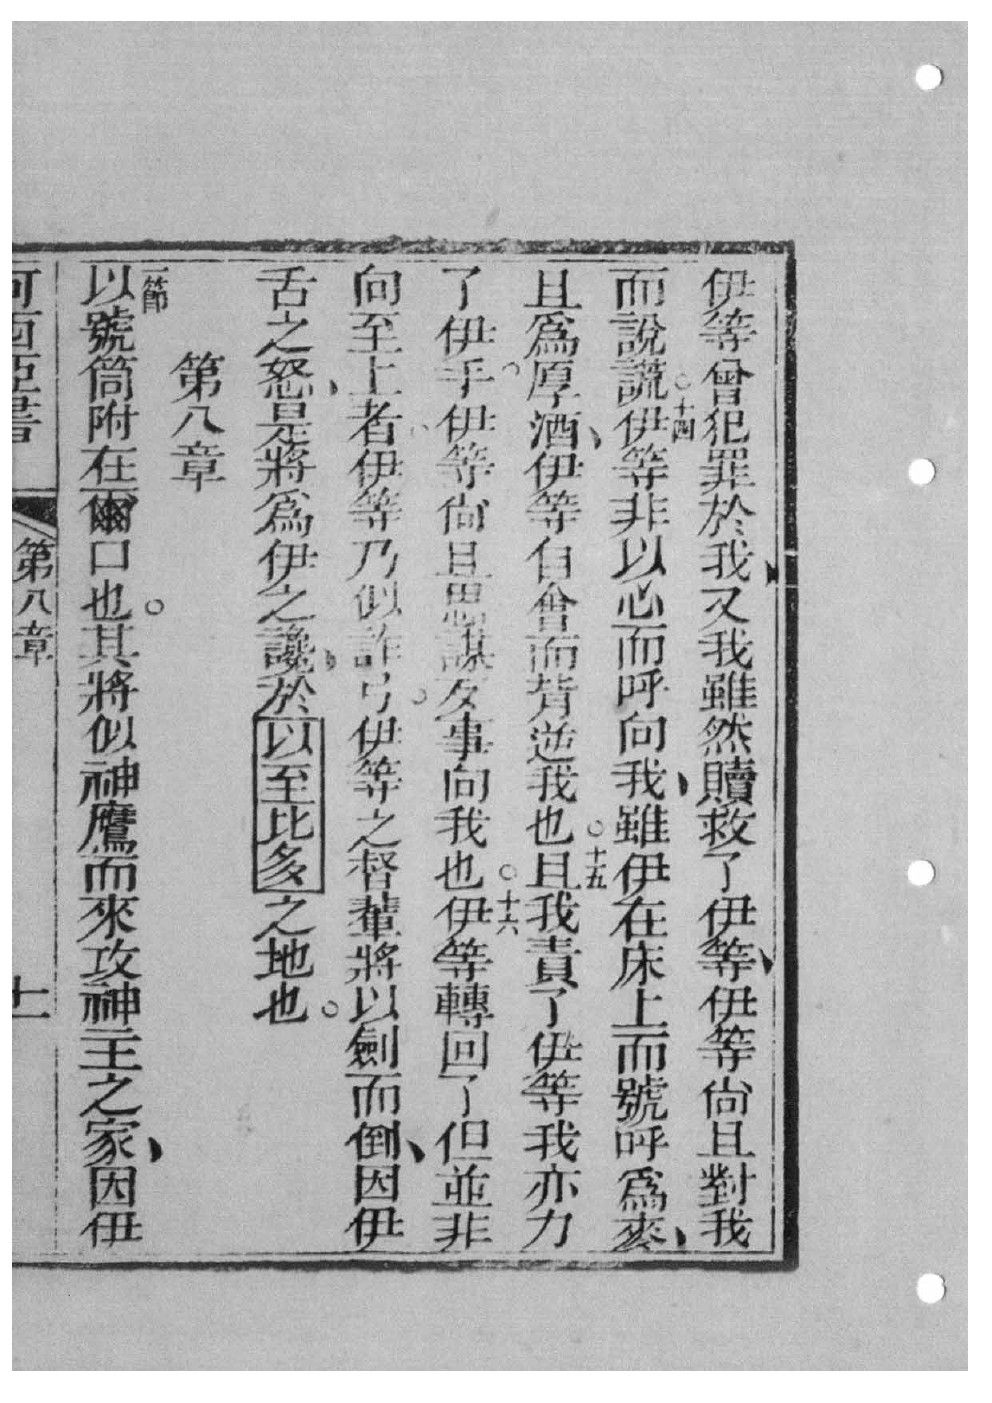 伊等曾犯罪於我、又我雖然贖救了伊等、伊等尙且對我
而說謊。十四伊等非以心而呼向我、雖伊在床上而號呼爲麥、
且爲厚酒、伊等自會而背逆我也。十五且我責了伊等我亦力
了伊手。伊等尙且思謀反事向我也。十六伊等轉回了但並非
向至上者。伊等乃似詐弓。伊等之督輩將以劍而倒、因伊
舌之怒、是將爲伊之讒、於以至比多之地也。
第八章
一節以號筒附在爾口也。其將似神鷹而來攻神主之家、因伊
何西亞書 第八章 十一